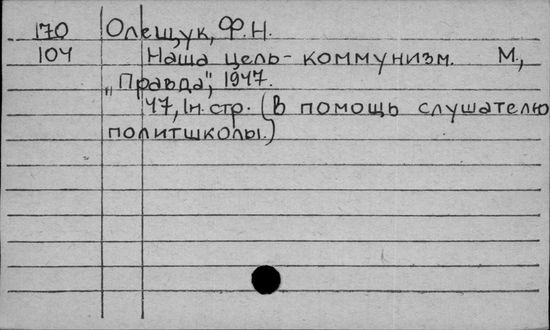 170 Олещук, Ф.Н.
104 Наша цель - коммунизм. М.,
„Правда", 1947.
47, 1н. стр. (В помощь слушателю
политшколы.)